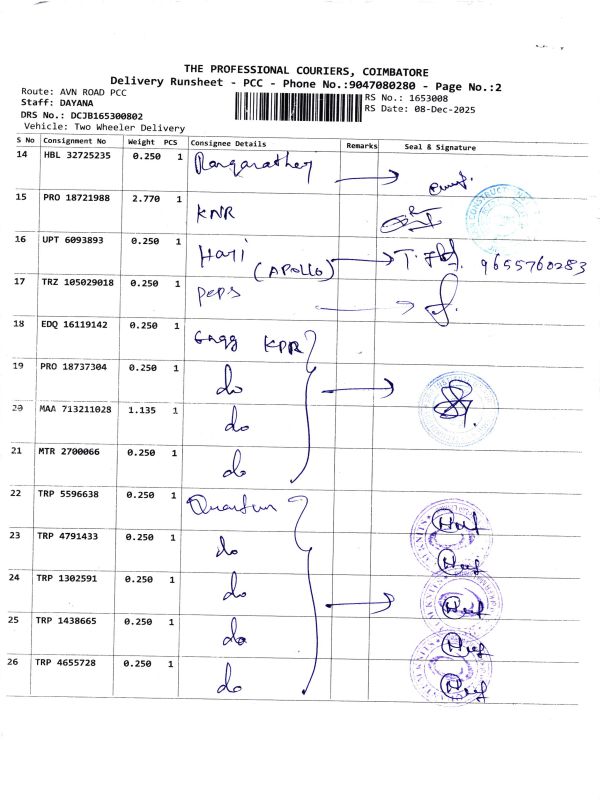 THE PROFESSIONAL COURIERS, COIMBATORE
Delivery Runsheet - PCC - Phone No.:9047080280 - Page No.:2
Route: AVN ROAD PCC
Staff: DAYANA
DRS No.: DCJB165300802
Vehicle: Two Wheeler Delivery
RS No.: 1653008
RS Date: 08-Dec-2025
S No Consignment No Weight PCS Consignee Details Remarks Seal & Signature
14 HBL 32725235 0.250 1
15 PRO 18721988 2.770 1 KNR
16 UPT 6093893 0.250 1 Hari (APOLLO) 9655760283
17 TRZ 105029018 0.250 1 peps
18 EDQ 16119142 0.250 1 KPR
19 PRO 18737304 0.250 1 do
20 MAA 713211028 1.135 1 do
21 MTR 2700066 0.250 1 do
22 TRP 5596638 0.250 1
23 TRP 4791433 0.250 1 do
24 TRP 1302591 0.250 1 do
25 TRP 1438665 0.250 1 do
26 TRP 4655728 0.250 1 do